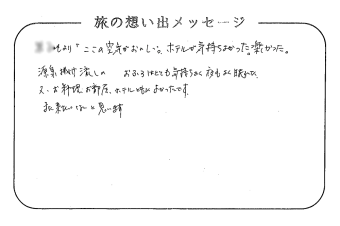 旅の想い出メッセージ
より。ここの空気がおいしい。ホテルが気持ちよかった。楽しかった。
源泉掛け流しの おふろはとても気持ちよく夜もよく眠れた
又、お料理、お部屋、ホテル
よかったです。
また来たい と思います